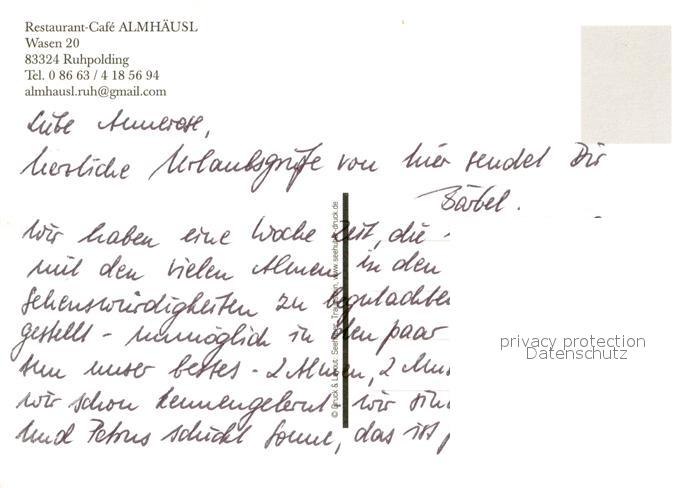 Restaurant-Café ALMHÄUSL
Wasen 20
83324 Ruhpolding
Tel. 0 86 63 / 4 18 56 94
almhausl.ruh@gmail.com
Liebe Annerose,
herzliche Urlaubsgrüße von hier sendet Dir
Bärbel.
Wir haben eine Woche Zeit, die
mit den vielen Almen in den
Sehenswürdigkeiten zu begutachten
gestellt - unmöglich in den paar
tun unser bestes - 2 Almen, 2
wir schon kennengelernt, wir sind
Und Petrus schickt Sonne, das ist
© Druck & Layout: Seehuber, Traunstein, www.seehuber-druck.de
privacy protection
Datenschutz